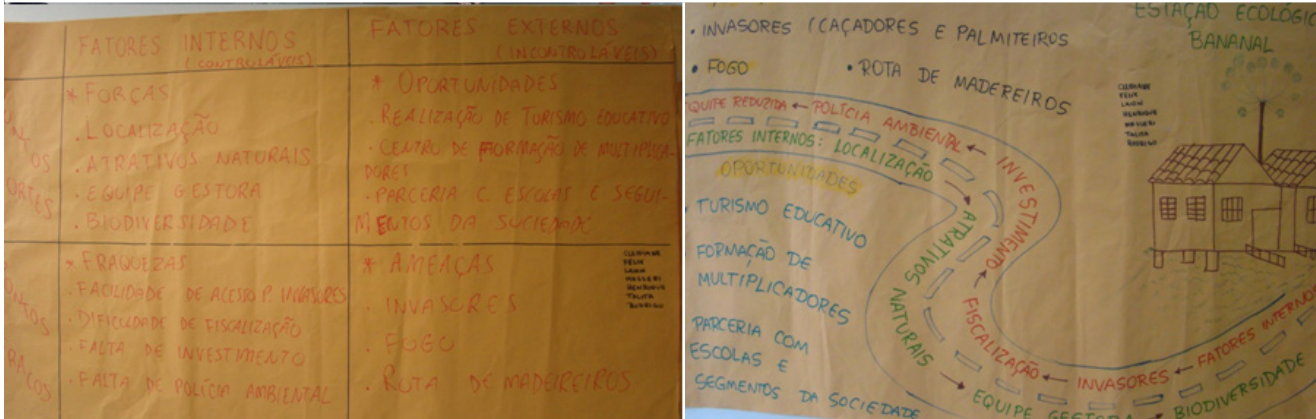 FATORES INTERNOS
(CONTROLÁVOS)
FATORES EXTERNOS
(INCONTROLÁVEIS)
* FORÇAS
. LOCALIZAÇÃO
. ATRATIVOS NATURAIS
. EQUIPE GESTORA
. BIODIVERSIDADE
* OPORTUNIDADES
. REALIZAÇÃO DE TURISMO EDUCATIVO
. CENTRO DE FORMAÇÃO DE MULTIPLICA-
DORES
. PARCERIA C. ESCOLAS E SEGUI-
MENTOS DA SOCIEDADE
* FRAQUEZAS
. FACILIDADE DE ACESSO P. INVASORES
. DIFICULDADE DE FISCALIZAÇÃO
. FALTA DE INVESTIMENTO
. FALTA DE POLÍCIA AMBIENTAL
* AMEAÇAS
. INVASORES
. FOGO
. ROTA DE MADEIREIROS
CLEIDIANE
FELIX
HENRIQUE
TALITA
RODRIGO
ESTAÇÃO ECOLÓGIC
BANANAL
• INVASORES (CAÇADORES E PALMITEIROS
• FOGO
• ROTA DE MADEREIROS
EQUIPE REDUZIDA ← POLÍCIA AMBIENTAL ← INVESTIMENTO ← FISCALIZAÇÃO ← INVASORES ← FATORES INTERNOS
FATORES INTERNOS: LOCALIZAÇÃO → ATRATIVOS NATURAIS → EQUIPE GESTOR → BIODIVERSIDADE
OPORTUNIDADES
• TURISMO EDUCATIVO
FORMAÇÃO DE
MULTIPLICADORES
PARCERIA COM
ESCOLAS E
SEGMENTOS DA SOCIEDADE
HENRIQUE
TALITA
RODRIGO